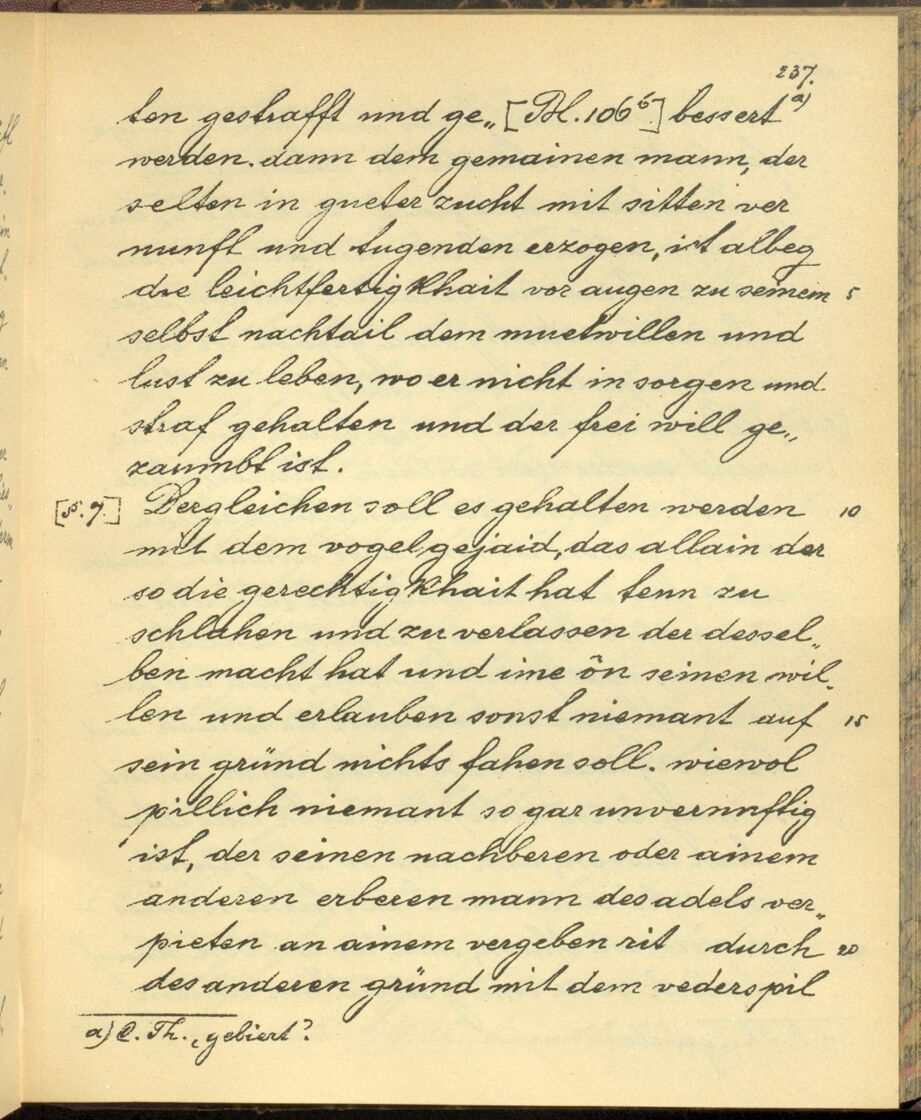 237.
ten gestrafft und ge„ [Bl. 106b] bessert a)
werden. dann dem gemainen mann, der
selten in gueter zucht mit sitten ver
nunft und tugenden erzogen, ist albeg
die leichtfertigkhait vor augen zu seinem 5
selbst nachtail dem muetwillen und
lust zu leben, wo er nicht in sorgen und
straf gehalten und der frei will ge„
zaumbt ist.
[§. 7.] Dergleichen soll es gehalten werden 10
mit dem vogelgejaid, das allain der
so die gerechtigkhait hat tenn zu
schlahen und zu verlassen der dessel„
ben macht hat und ime ön seinen wil„
len und erlauben sonst niemant auf 15
sein gründ nichts fahen soll. wiewol
pillich niemant so gar unvernnftig
ist, der seinen nachberen oder ainem
anderen erberen mann des adels ver„
pieten an ainem vergeben rit durch 20
des anderen gründ mit dem vederspil
a) C. Th. „gebiert?